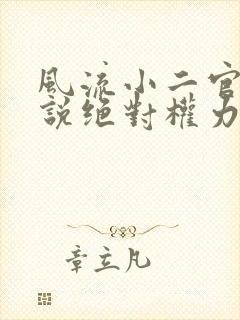 風流小二官
說绝對權力
章立凡